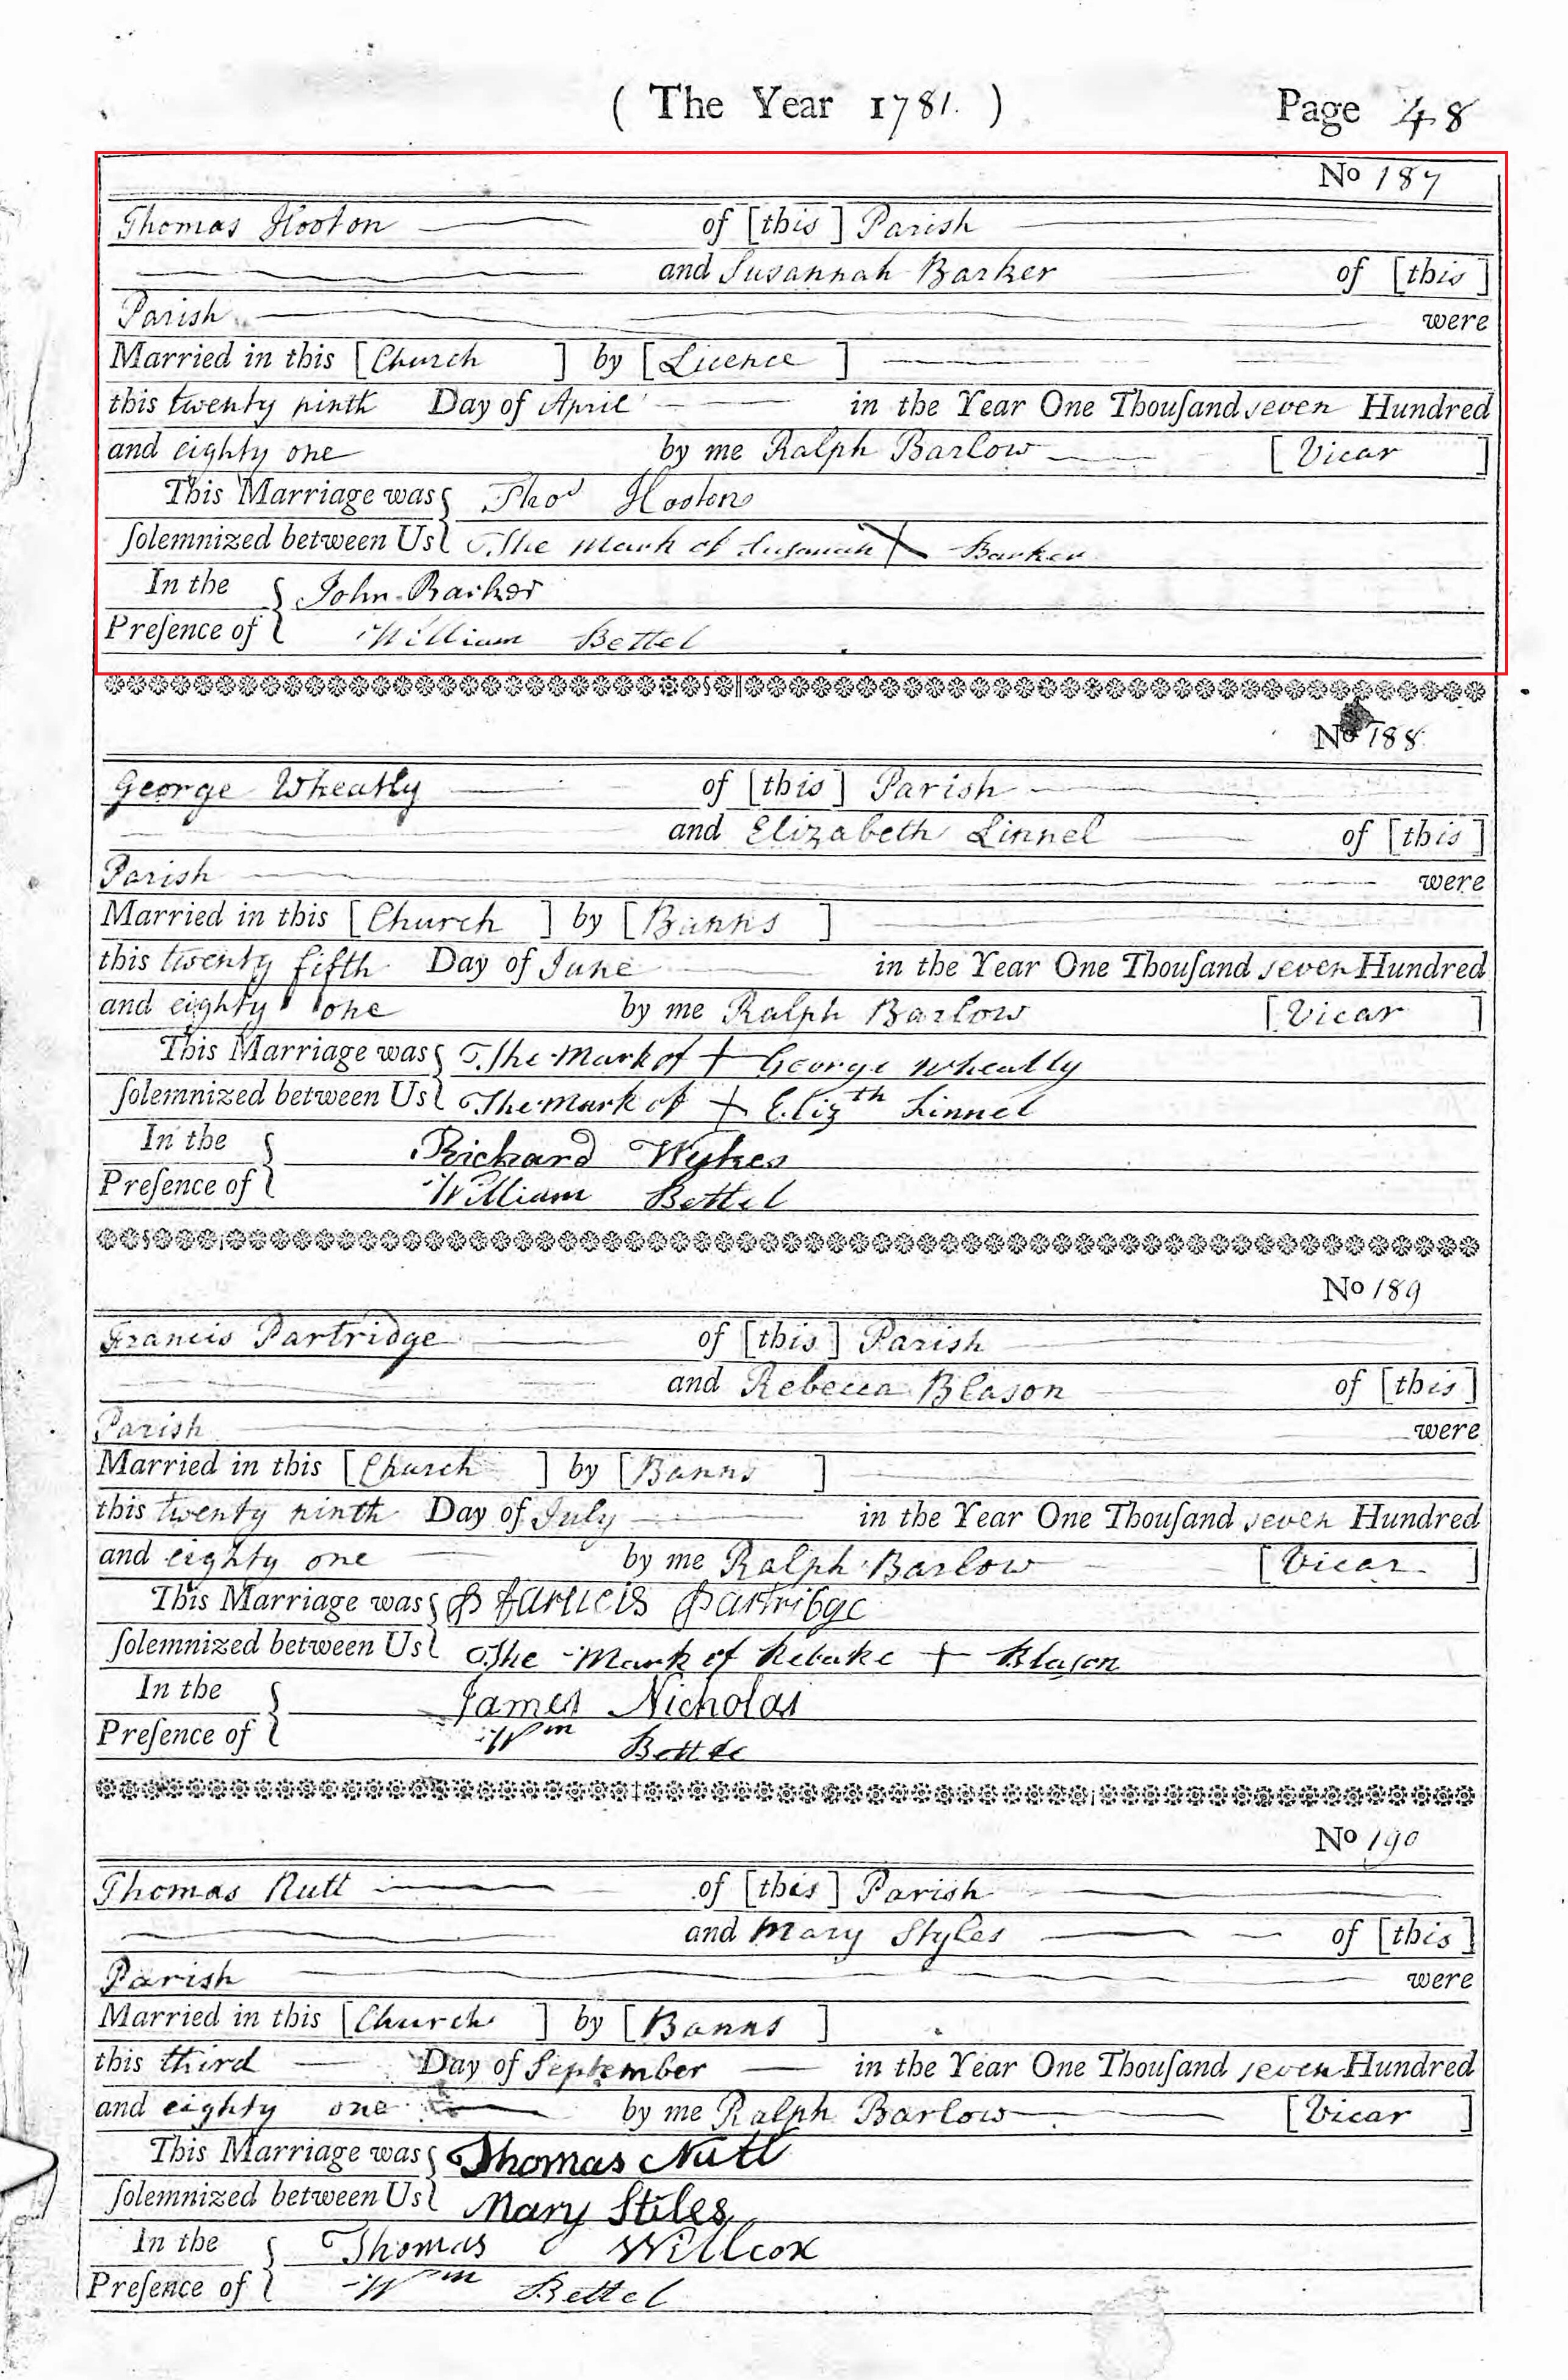 ( The Year 1781. ) Page 48
No 187
Thomas Hooton of [this] Parish
and Susannah Barker of [this]
Parish were
Married in this [Church] by [Licence]
this twenty ninth Day of April in the Year One Thouſand seven Hundred
and eighty one by me Ralph Barlow [Vicar]
This Marriage was Thos Hooton
ſolemnized between Us The mark of Susanah X Barker
In the John Barker
Preſence of William Bettel
No 188
George Wheatly of [this] Parish
and Elizabeth Linnel of [this]
Parish were
Married in this [Church] by [Banns]
this twenty fifth Day of June in the Year One Thouſand seven Hundred
and eighty one by me Ralph Barlow [Vicar]
This Marriage was The Mark of + George Wheatly
ſolemnized between Us The Mark of + Elizth Linnel
In the Richard Wykes
Preſence of William Bettel
No 189
Francis Partridge of [this] Parish
and Rebecca Blason of [this]
Parish were
Married in this [Church] by [Banns]
this twenty ninth Day of July in the Year One Thouſand seven Hundred
and eighty one by me Ralph Barlow [Vicar]
This Marriage was Partribge
ſolemnized between Us The Mark of Rebake + Blason
In the James Nicholas
Preſence of Wm
No 190
Thomas Nutt of [this] Parish
and Mary Styles of [this]
Parish were
Married in this [Church] by [Banns]
this third Day of September in the Year One Thouſand seven Hundred
and eighty one by me Ralph Barlow [Vicar]
This Marriage was Thomas Nutt
ſolemnized between Us Mary Stiles
In the Thomas Willcox
Preſence of Wm Bettel